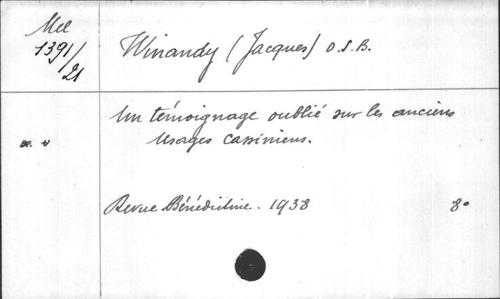 Mél
1391/
21
Winandy (Jacques) O.S.B.
Un témoignage oublié sur les anciens
usages cassiniens.
Revue Bénédictine. 1938 8°